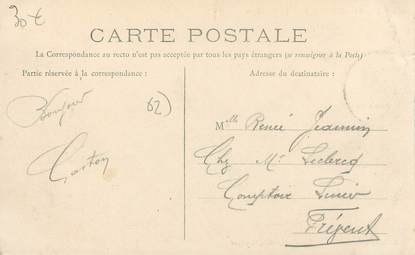 30 €
CARTE POSTALE
La Correspondance au recto n'est pas acceptée par tous les pays étrangers (se renseigner à la Poste)
Partie réservée à la correspondance :
Adresse du destinataire :
Bonjour
Gaston
62)
Mlle Renée Jeannin
Chez Mr Leclercq
Comptoir Linier
Frévent